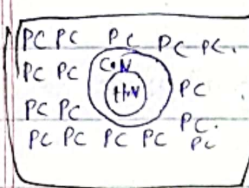 PC PC PC PC PC.
PC PC CON
PC
PC PC PC.
PC PC PC PC PC